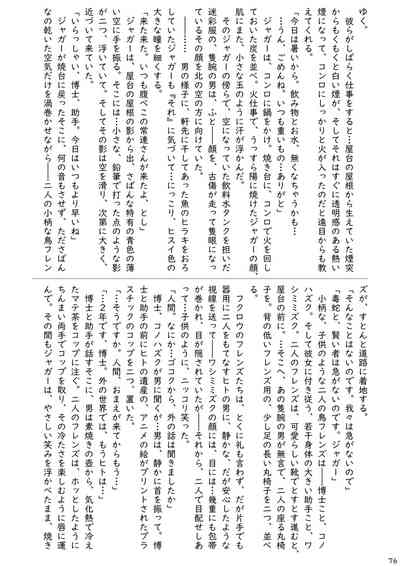 ゆく。
　彼らがしばらく仕事をすると…屋台の屋根から生えていた煙突
からもくもくと白い煙が、そしてそれはすぐに透明感のある熱い
煙になって、コンロにしっかりと火が入ったのだと遠目からも教
えてくれる。
「今日は暑いから、飲み物とお水、無くなちゃうかも…
……うん。ごめんね、いつも重いもの…ありがと」
　ジャガーは、コンロに鍋をかけ、焼き台に、コンロで火を回し
ておいた炭を並べ。火仕事で、うっすら陽に焼けたジャガーの顔、
肌にまた、小さな玉のように汗が浮かんだ。
　そのジャガーの傍らで、空になっていた飲料水タンクを担いだ
迷彩服の、隻腕の男は、ふと――顔を、古傷が走って隻眼になっ
ているその顔を北の空の方に向けていた。
　――――男の様子に、軒先に干してあった魚のヒラキをおろ
していたジャガーも〝それ〟に気づいて…にっこり、ヒスイ色の
大きな瞳を細くする。
「来た来た。いつも腹ぺこの常連さんが来たよ、とし」
　ジャガーは、屋台の屋根の影から出、さばんな特有の青色の薄
い空に手を振る。そこには…小さな、鉛筆で打った点のような影
が二つ、浮いていて、そしてその影は空を滑り、次第に大きく、
近づいて来ていた。
「いらっしゃい、博士、助手。今日はいつもより早いね」
　ジャガーが焼台に戻ったそこに、何の音もさせず、たださばん
なの乾いた空気だけを渦巻かせながら――二人の小柄な鳥フレン
ズが、すとんと道路に着地する。
「そんなことはないのです。我々は急がないので」
「毒蛇と、賢い者は急がないのです。ジャガー」
　小柄な、子供のような二人の鳥フレンズは――博士こと、コノ
ハズク。そして彼女に付き従う、若干身体の大きい助手こと、ワ
シミミズク。二人のフレンズは、可愛らしい靴でとすす進むと、
屋台の前に、…そこへ、あの隻腕の男が無言で、二人の座る丸椅
子を、背の低いフレンズ用の、少し足の長い丸椅子を二つ、並べ
る。
　フクロウのフレンズたちは、とくに礼も言わず、だが片手でも
器用に二人をもてなすヒトの男に、静かな、だが安心したような
視線を送って――ワシミミズクの顔には、目には…幾重にも包帯
が巻かれ、目が隠されていたが――それから、二人で目配せしあ
って…子供のように、ニッコリ笑った。
「人間。なにか…ゴコクから、外の話は聞きましたか」
　博士、コノハズクが男に聞くが…男は、静かに首を振って。博
士と助手の前にヒトの遺産の、アニメの絵がプリントされたプラ
スチックのコップを二つ、置いた。
「…そうですか。人間、おまえが来てからもう…」
「…２年です、博士。外の世界では、もうヒトは…」
　博士と助手が話すそこに、男は素焼きの壺から、気化熱で冷え
たマテ茶をコップに注ぐ。二人のフレンズは、ホッとしたように
ちんまい両手でコップを取り、その冷たさを楽しむように唇に運
んで。その間もジャガーは、やさしい笑みを浮かべたまま、焼き
76